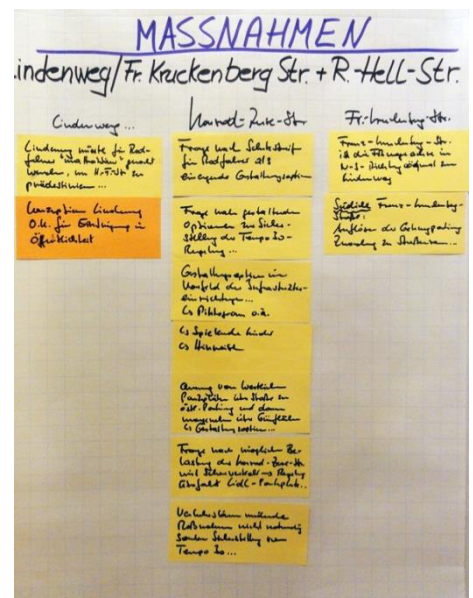 MASSNAHMEN
indenweg/Fr. Kruckenberg Str. + R.-Hell-Str.
Lindenweg...
Lindenweg müsste für Rad-
fahrer "unattraktiv" gemacht
werden, um H.-F.-Str zu
prädestinieren...
Konzeption Lindenweg
O.K. für Einbringung in
Öffentlichkeit
Konrad-Zuse-Str
Frage nach Schutzstreifen
für Radfahrer als
einengende Gestaltungsoption
Frage nach gestaltenden
Optionen zur Sicher-
stellung der Tempo 30-
Regelung...
Gestaltungsoption im
Vorfeld der Infrastruktur-
einrichtungen...
↳ Piktogram o.ä.
↳ Spielende Kinder
↳ Hinweise
Querung von westlichen
Parkplätzen über Straße zu
östl. Parking und dann
über Grünflächen
↳ Gestaltungsoption...
Frage nach möglicher Be-
lastung der Konrad-Zuse-Str.
mit
Lidl-Parkplatz..
Maßnahmen nicht notwendig
sondern Sicherstellung von
Tempo 30...
Fr.-Kruckenberg-Str.
Franz-Kruckenberg-Str.
ist die Führungsachse in
N-S-Richtung
Lindenweg
Südliche Franz-Kruckenberg-
Straße:
Auflösen des Gehwegparking
Zuordng zu Straßenraum...